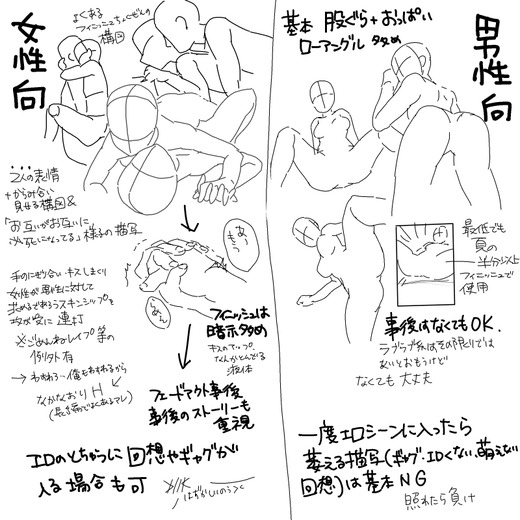 女性向
よくある
フィニッシュちょくぜんの
構図
2人の表情
+からみ合い
見せる構図&
「お互いがお互いに
必死になってる」様子の描写
手のにぎり合い キスしまくり
女性が男性に対して
求めるであろうスキンシップを
攻が受に連打
※ごめんねレイプ等の
例外有
→
なかなおりH
あっ
もうっ
あんっ
フィニッシュは
暗示多め
キスのアップ、
なんかとんでる
液体
フェードアウト事後
事後のストーリーも
重視
IDのとちゅうに回想やギャグが
入る場合も可
はずかしいのうっ
男性向
基本 股ぐら+おっぱい
ローアングル 多め
最低でも
頁の
半分以上
フィニッシュで
使用
事後はなくてもOK.
ラブラブ系はその限りでは
ないとおもうけど
なくても 大丈夫
一度エロシーンに入ったら
萎える描写(ギャグ・IDくない、萌えない
回想)は基本NG
照れたら負け